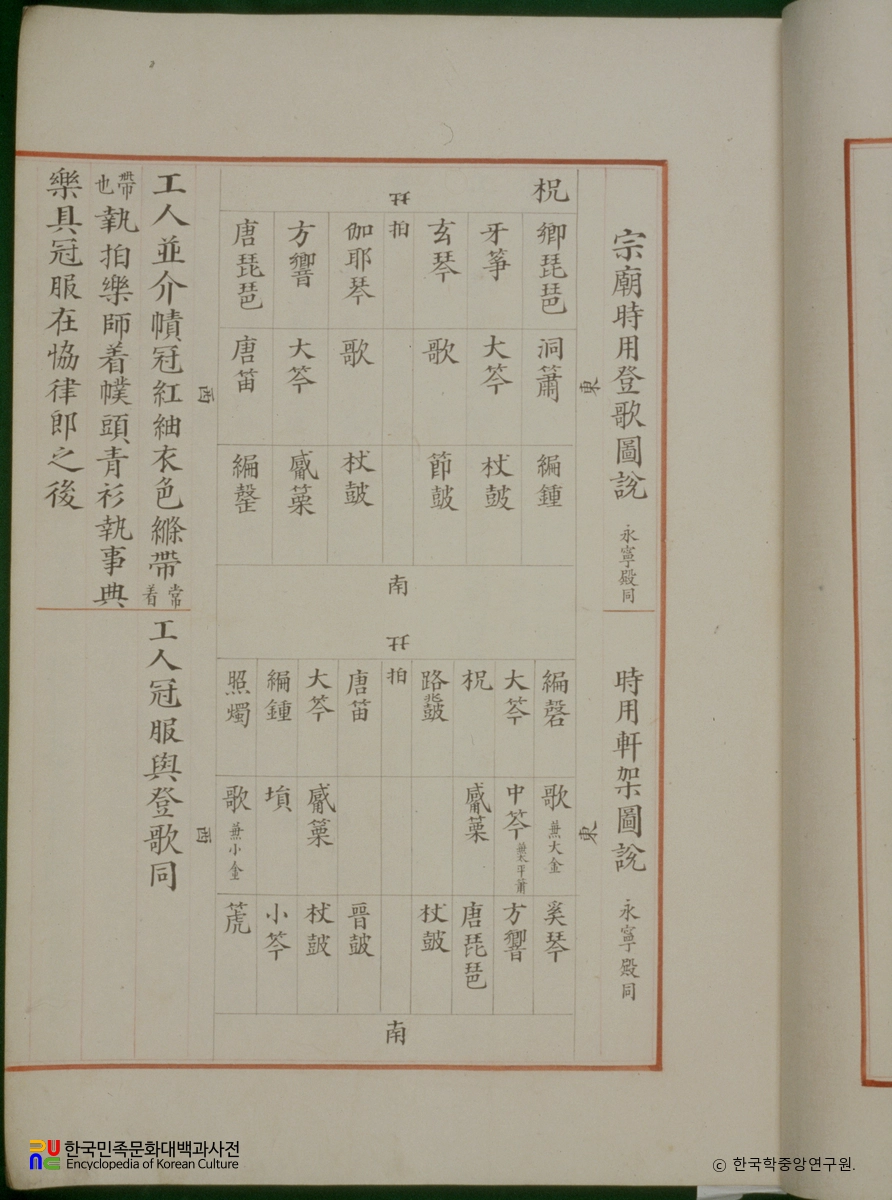 宗廟時用登歌圖說 永寧殿同
東
柷
北
鄕琵琶 洞簫 編鍾
牙箏 大笒 杖皷
玄琴 歌 節皷
拍
伽耶琴 歌 杖皷
方響 大笒 觱篥
唐琵琶 唐笛 編罄
南
西
工人並介幘冠紅紬衣色絛帶常着
帶也執拍樂師着幞頭青衫執事典
樂具冠服在恊律郎之後
時用軒架圖說 永寧殿同
東
北
編磬 歌兼大金 奚琴
大笒 中笒兼太平簫 方響
柷 觱篥 唐琵琶
路鼗 杖皷
拍
唐笛 晉皷
大笒 觱篥 杖皷
編鍾 塤 小笒
照燭 歌兼小金 箎
南
西
工人冠服與登歌同
한국민족문화대백과사전
Encyclopedia of Korean Culture
© 한국학중앙연구원.